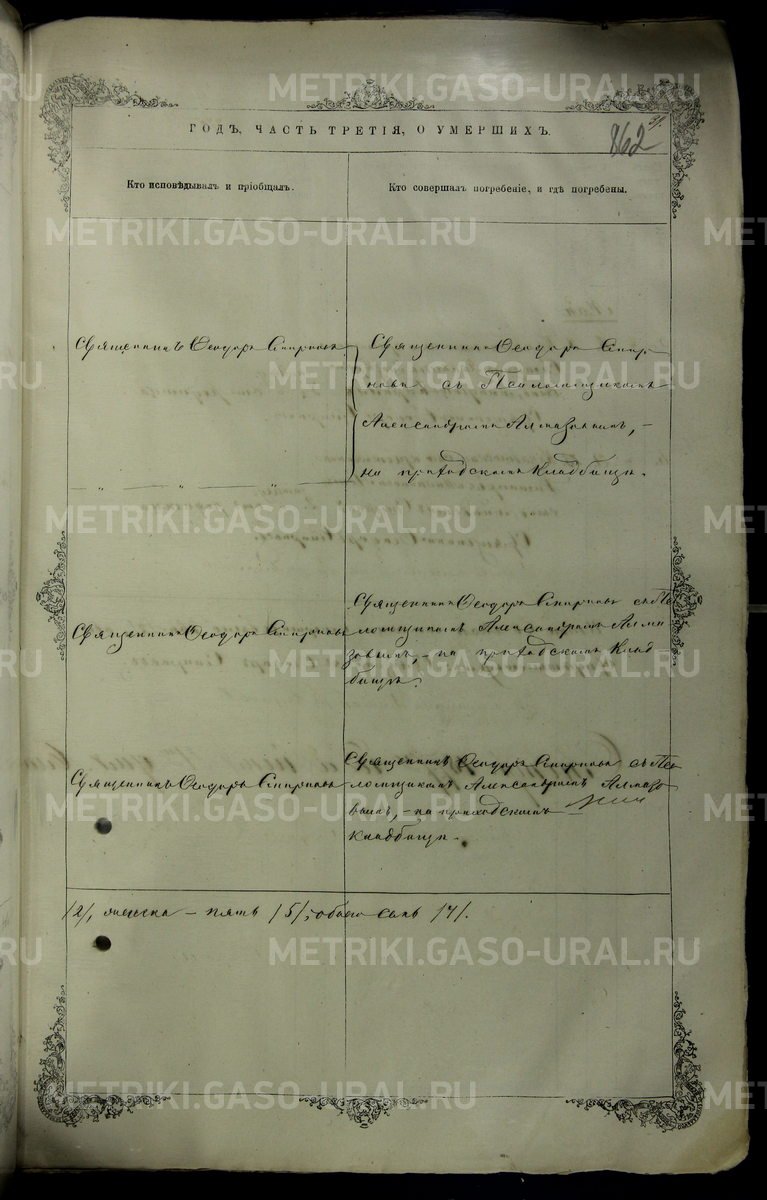 ГОДЪ, ЧАСТЬ ТРЕТІЯ, О УМЕРШИХЪ.
862
Кто исповѣдывалъ и пріобщалъ.
Кто совершалъ погребеніе, и гдѣ погребены.
Священникъ Ѳеодоръ Смирновъ
Священникъ Ѳеодоръ Смир-
новъ съ Псаломщикомъ
Александромъ Алмазовымъ, -
на приходскомъ кладбищѣ.
Священникъ Ѳеодоръ Смирновъ
Священникъ Ѳеодоръ Смирновъ съ Пса
ломщикомъ Александромъ Алма
зовымъ, - на приходскомъ клад-
бищѣ.
Священникъ Ѳеодоръ Смирновъ
Священникъ Ѳеодоръ Смирновъ съ Пса
ломщикомъ Александромъ Алмазо
вымъ, - на приходскомъ
кладбищѣ.
/2/, женска - пять /5/, обоего семь /7/.
METRIKI.GASO-URAL.RU